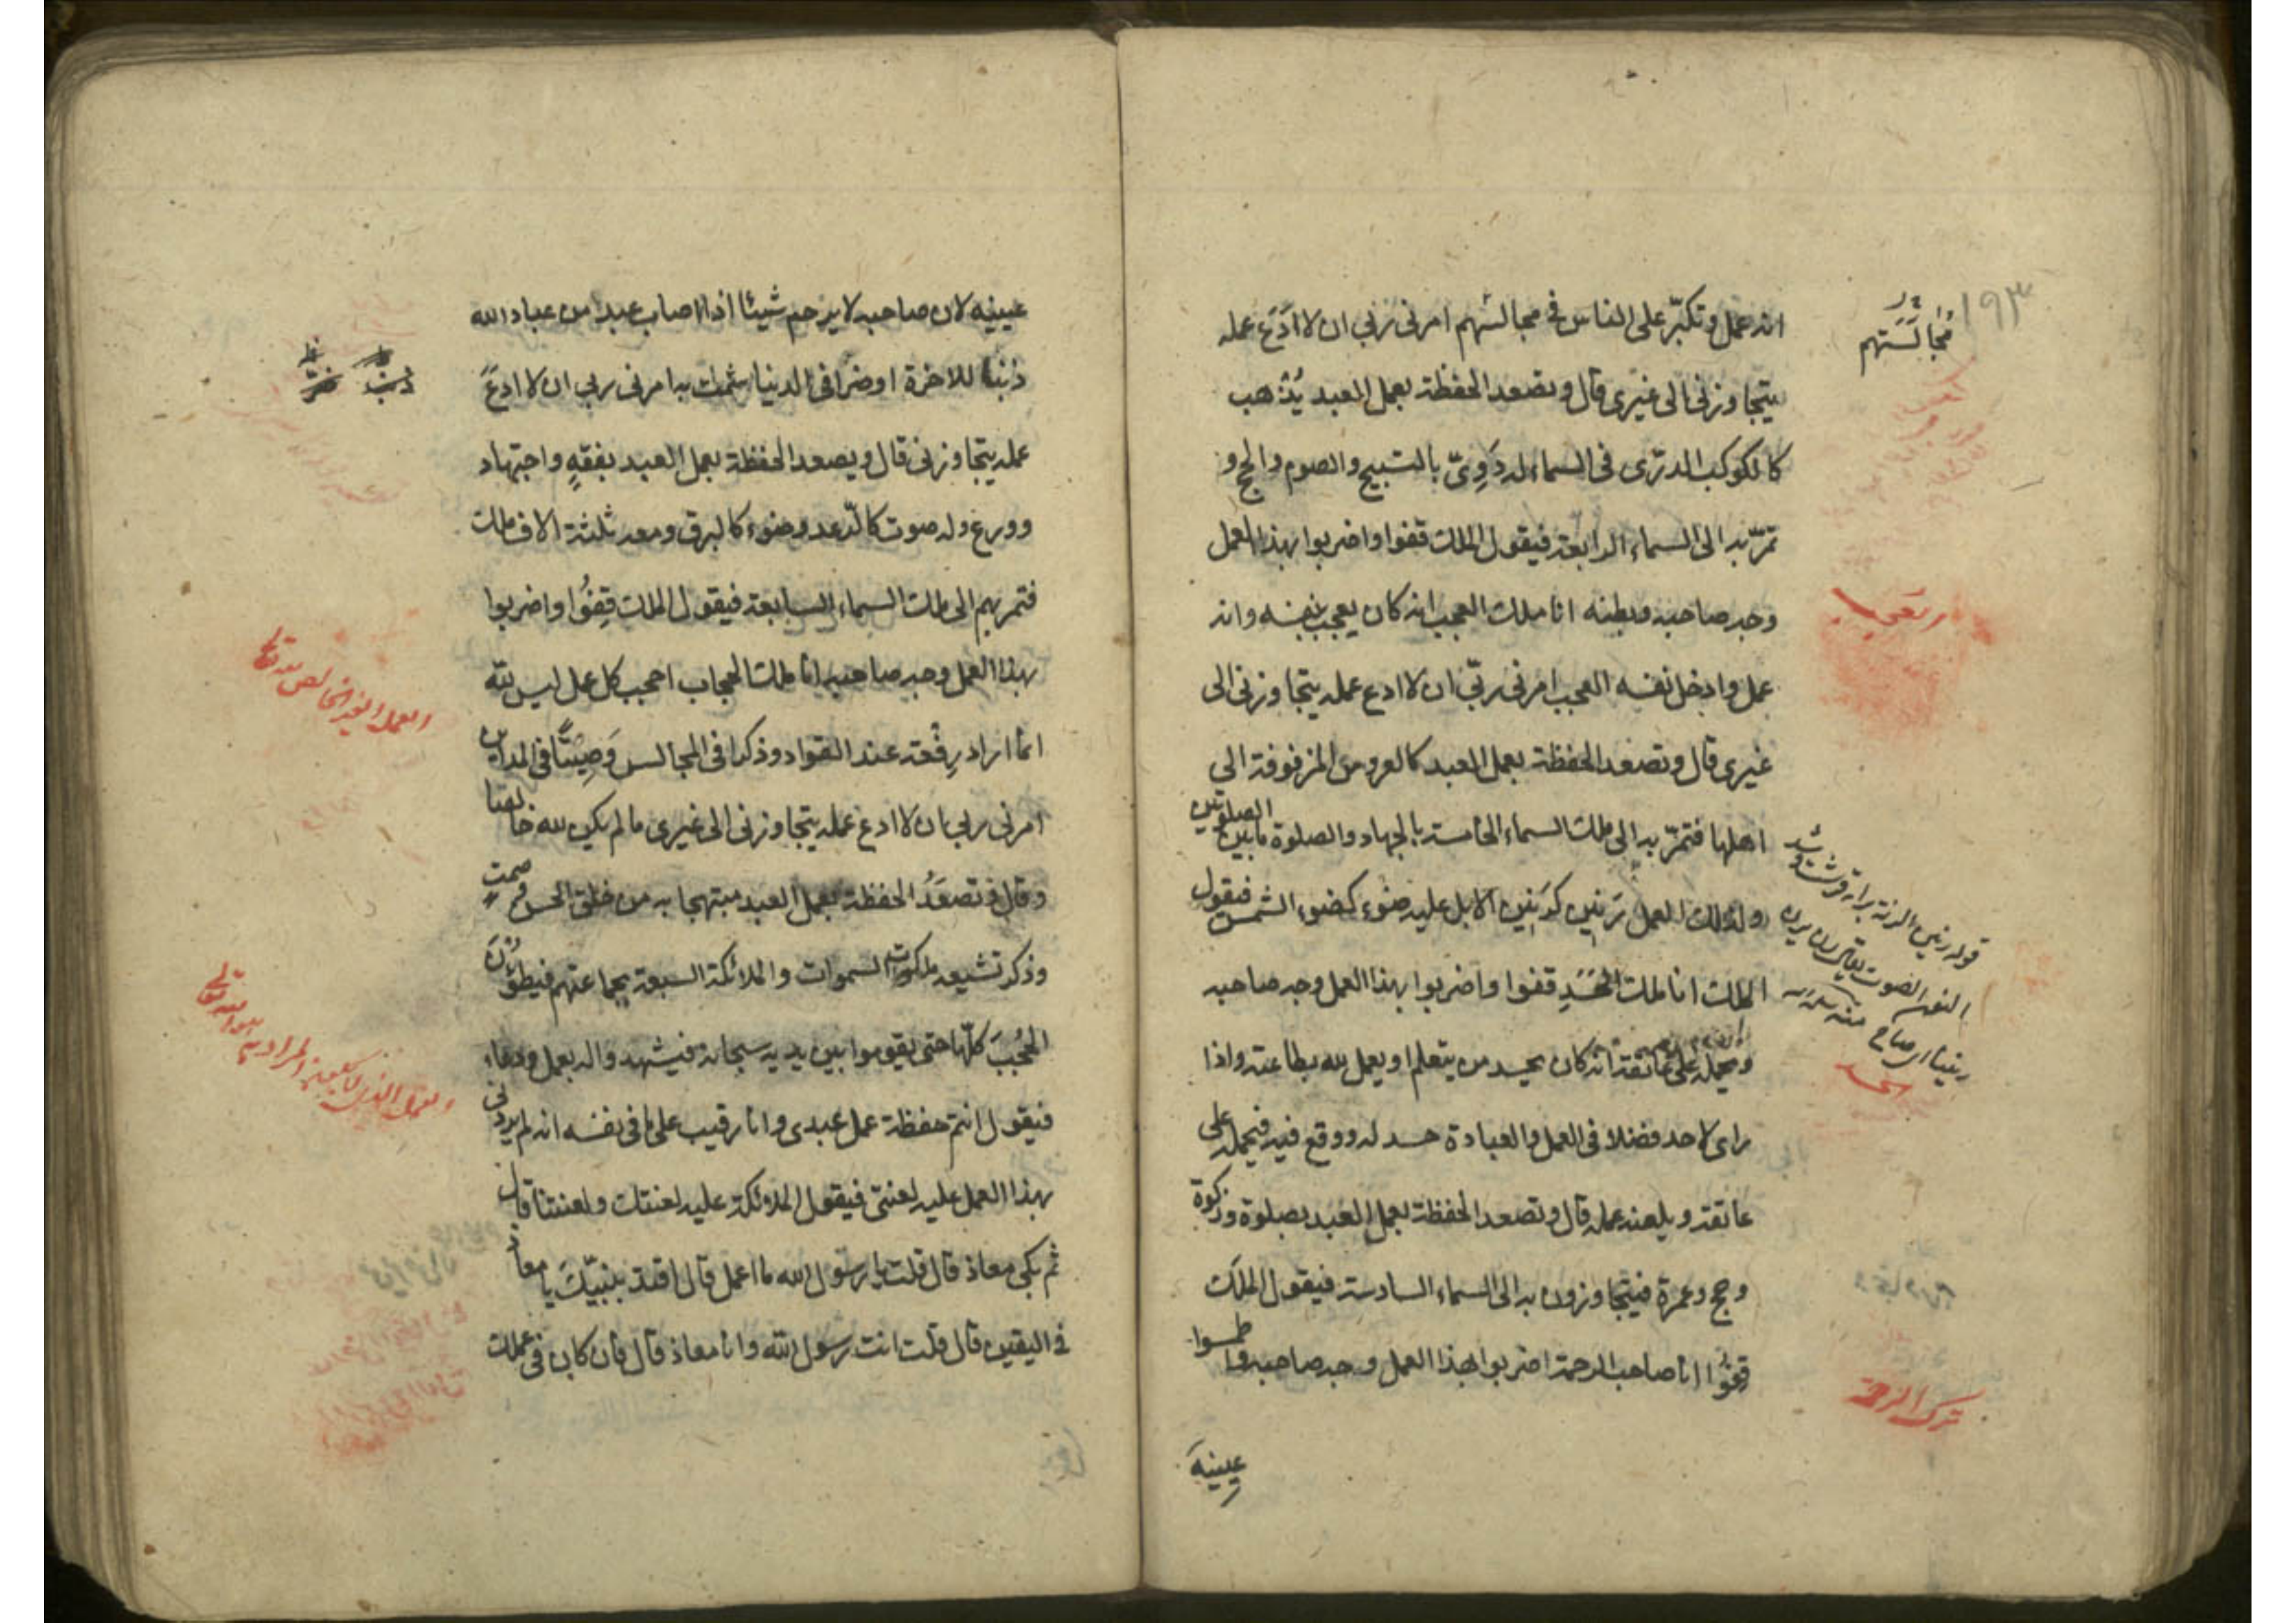 ١٩٣
مُجَالَسَتهم
انه عمل وتكبّر على الناس في مجالسهم امرنى ربى ان لا اَدَعَ عمله
يتجاوزنى الى غيرى قال وتصعد الحفظة بعمل العبد يُذهب
كالكوكب الدرّى فى السماء له دَوِىّ بالتسبيح والصوم والحج و
تمرّ به الى السماء الرابعة فيقول الملك قفوا واضربوا بهذا العمل
وجه صاحبه وبطنه انا ملك العجب انه كان يعجب بنفسه وانه
عمل وادخل نفسه العجب امرنى ربّى ان لا ادع عمله يتجاوزنى الى
غيرى قال وتصعد الحفظة بعمل العبد كالعروس المزفوفة الى
اهلها فتمرّ به الى ملك السماء الخامسة بالجهاد والصلوة ما بين الصلوتين
ولذلك العمل رَنين كرَنين الابل عليه ضوء كضوء الشمس فيقول
الملك انا ملك الحَسَدِ قفوا واضربوا بهذا العمل وجه صاحبه
ويحمله على عاتقه انه كان يحسد من يتعلم او يعمل لله بطاعته واذا
راى لاحد فضلا فى العمل والعبادة حسد له ووقع فيه فيحمله على
عاتقه ويلعنه عمله قال وتصعد الحفظة بعمل العبد بصلوة وزكوة
وحج وعمرة فيتجاوزون به الى السماء السادسة فيقول الملَك
قِفُوْا انا صاحب الرحمة اضربوا بهذا العمل وجه صاحبه واطمسوا
عينيهَ
الحسد
ترك الرحمة
عينيه لان صاحبه لا يرحم شيئا اذا اصاب عبدا من عباد الله
ذنبا للاخرة او ضرا فى الدنيا شمت به امرنى ربى ان لا ادعَ
عمله يتجاوزنى قال ويصعد الحفظة بعمل العبد بفقهٍ واجتهاد
وورع وله صوت كالرّعد وضوء كالبرق ومعه ثلثة الاف ملك
فتمر بهم الى ملك السماء السابعة فيقول الملك قِفُوا واضربوا
بهذا العمل وجه صاحبه انا ملك الحجاب احجب كل عمل ليس لله
انما اراد رِفْعة عند القواد وذكرا فى المجالس وَصِيتًا فى المداين
امرنى ربى بان لا ادع عمله يتجاوزنى الى غيرى ما لم يكن لله خالصا
وقال وتصعَدُ الحفظة بعمل العبد مبتهجا به من خلق الحسن وصمت
وذكر تشيعه ملكوت السموات والملائكة السبعة بجماعتهم فيطؤُنَ
الحُجُبَ كلّها حتى يقوموا بين يديه سبحانه فيشهدوا له بعمل ودعاء
فيقول انتم حفظة عمل عبدى وانا رقيب على ما فى نفسه انه لم يردنى
بهذا العمل عليه لعنتى فيقول الملائكة عليه لعنتك ولعنتنا قال
ثم بكى معاذ قال قلت يا رسول الله ما اعمل قال اقتد بنبيّكَ يا معاذ
فى اليقين قال قلت انت رسول الله وانا معاذ قال فان كان فى عملك
العمل الغير الخالص لله تعالى